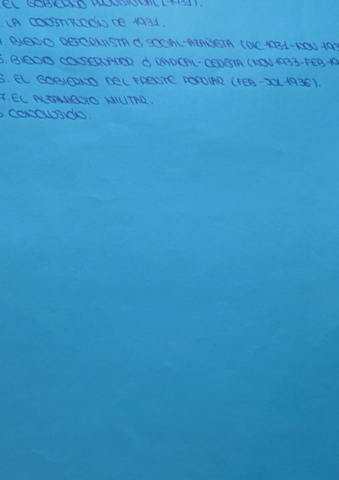 . EL GOBIERNO PROVISIONAL (1931).
. LA CONSTITUCIÓN DE 1931.
. BIENIO REFORMISTA Ó SOCIAL-AZAÑISTA (DIC 1931-NOV 193
5. BIENIO CONSERVADOR Ó RADICAL-CEDISTA (NOV 1933-FEB 19
6. EL GOBIERNO DEL FRENTE POPULAR (FEB-JUL 1936).
7. EL ALZAMIENTO MILITAR.
CONCLUSIÓN.